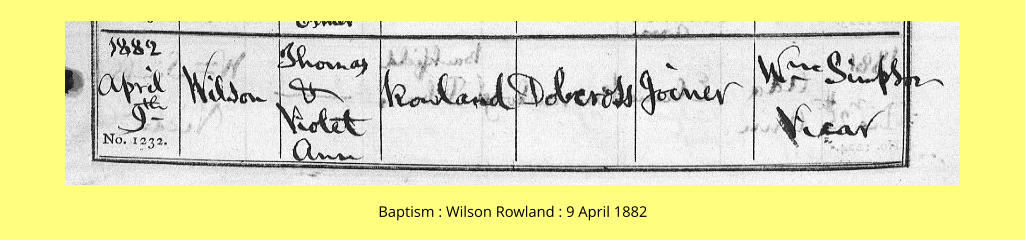 1882
April
9th
No. 1232.
Wilson
Thomas
&
Violet
Ann
Rowland
Dobcross
Joiner
Wm Simpson
Vicar
Baptism : Wilson Rowland : 9 April 1882